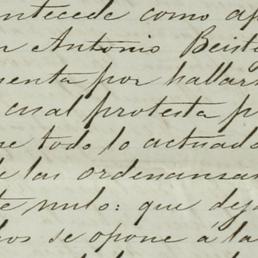 antecede como ap
n Antonio Beist
menta por hallars
cual protesta p
ue todo lo actuado
de las ordenanzas
te nulo: que dej
hos se opone a la